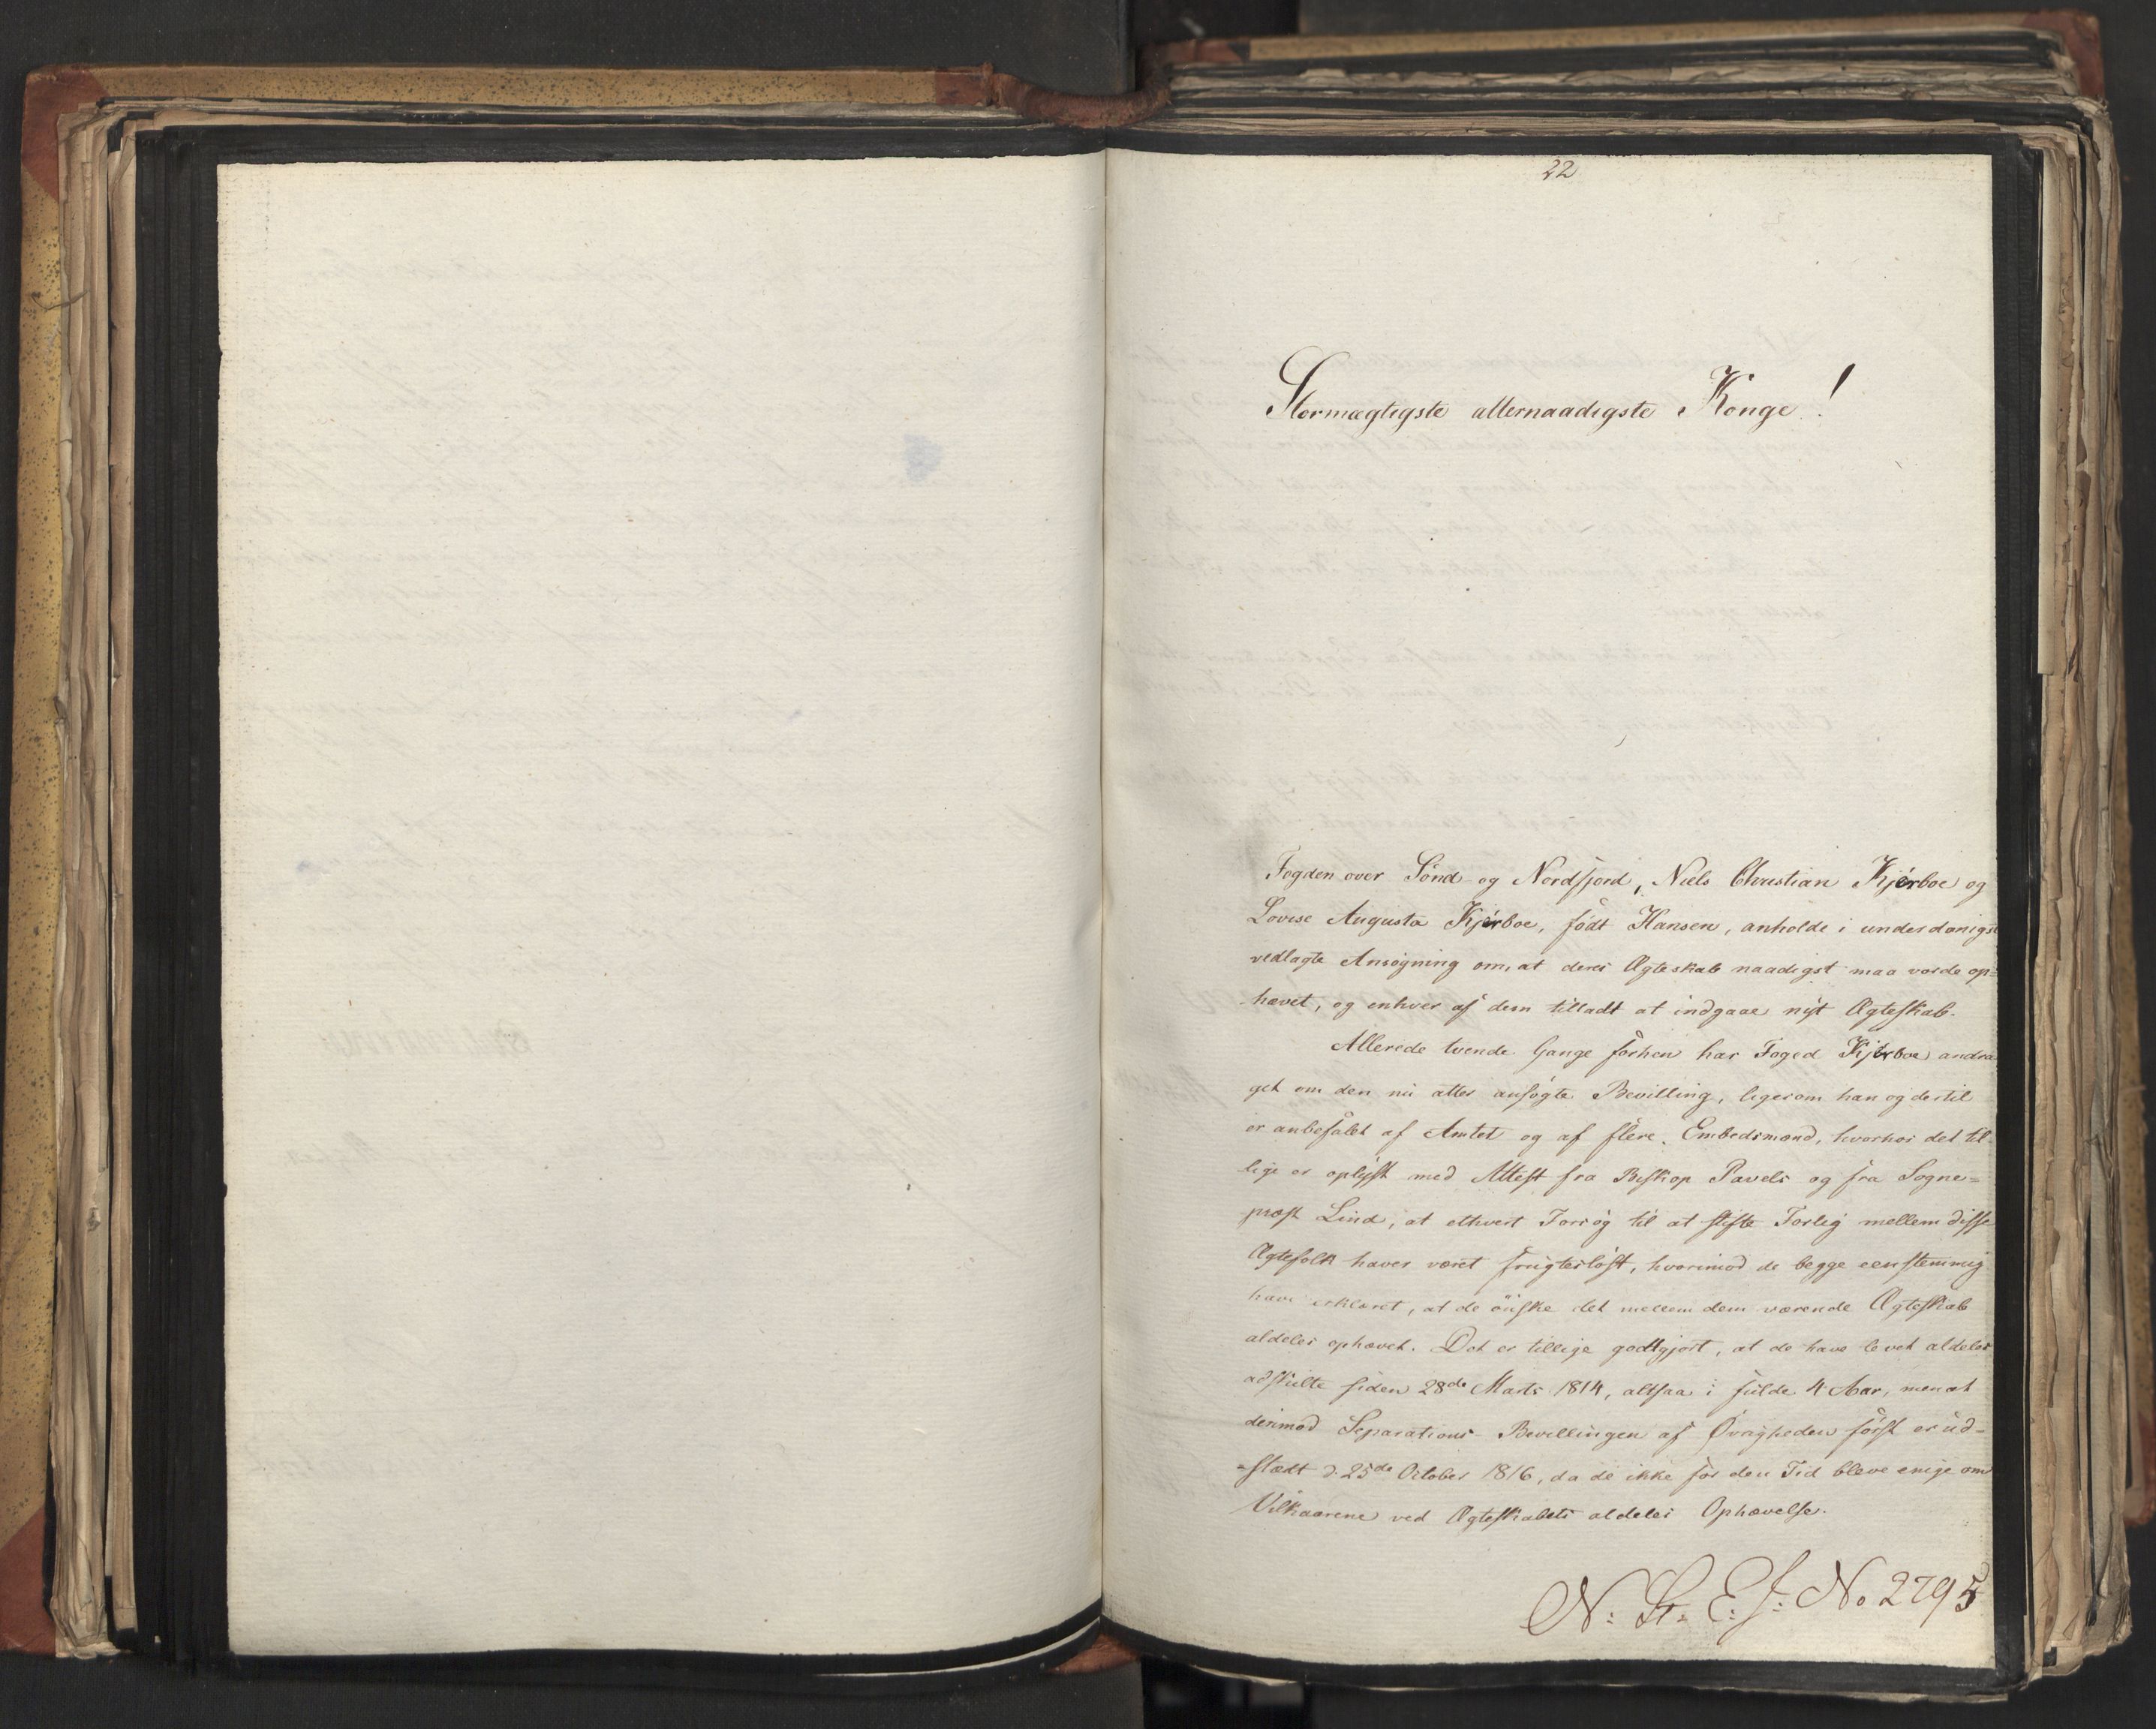 22
Stormægtigste allernaadigste Konge!
Fogden over Sönd- og Nordfjord, Niels Christian Kjérboe og
Lovise Augusta Kjérboe, födt Hansen, anholde i underdanigst
vedlagte Ansögning om, at deres Ægteskab naadigst maa vorde op=
hævet, og enhver af dem tilladt at indgaae nyt Ægteskab.
Allerede tvende Gange förhen har Foged Kjérboe andra
get om den nu atter ansögte Bevilling, ligesom han og dertil
er anbefalet af Amtet og af flere Embedsmænd, hvorhos det til-
lige er oplyst med Attest fra Biskop Pavels og fra Sogne=
præst Lind, at ethvert Forsög til at stifte Forlig mellem disse
Ægtefolk haver været frugteslöst, hvorimod de begge eenstemmig
have erklæret, at de önske det mellem dem værende Ægteskab
aldeles ophævet. Det er tillige godtgjort, at de have levet aldeles
adskilte siden 28de Marts 1814, altsaa i fulde 4 Aar, men at
derimod Separations-Bevillingen af Øvrigheden först er ud-
-stædt d. 25de October 1816, da de ikke för den Tid bleve enige om
Vilkaarene ved Ægteskabets aldeles Ophævelse.
N: St: E: J: No 2795